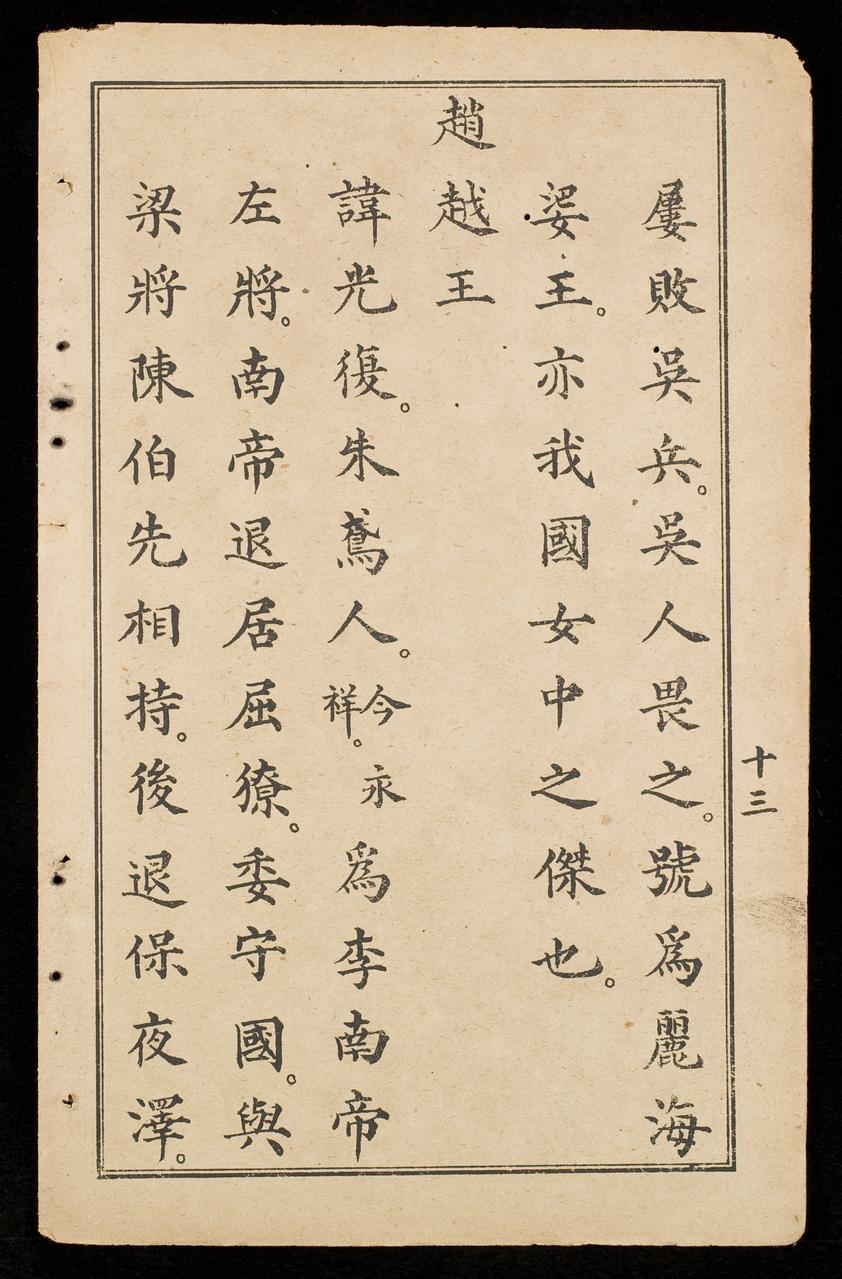 屢敗吳兵。吳人畏之。號爲麗海
婆王。亦我國女中之傑也。
趙越王
諱光復。朱鳶人。今永祥。爲李南帝
左將。南帝退居屈獠。委守國。與
梁將陳伯先相持。後退保夜澤。
十三